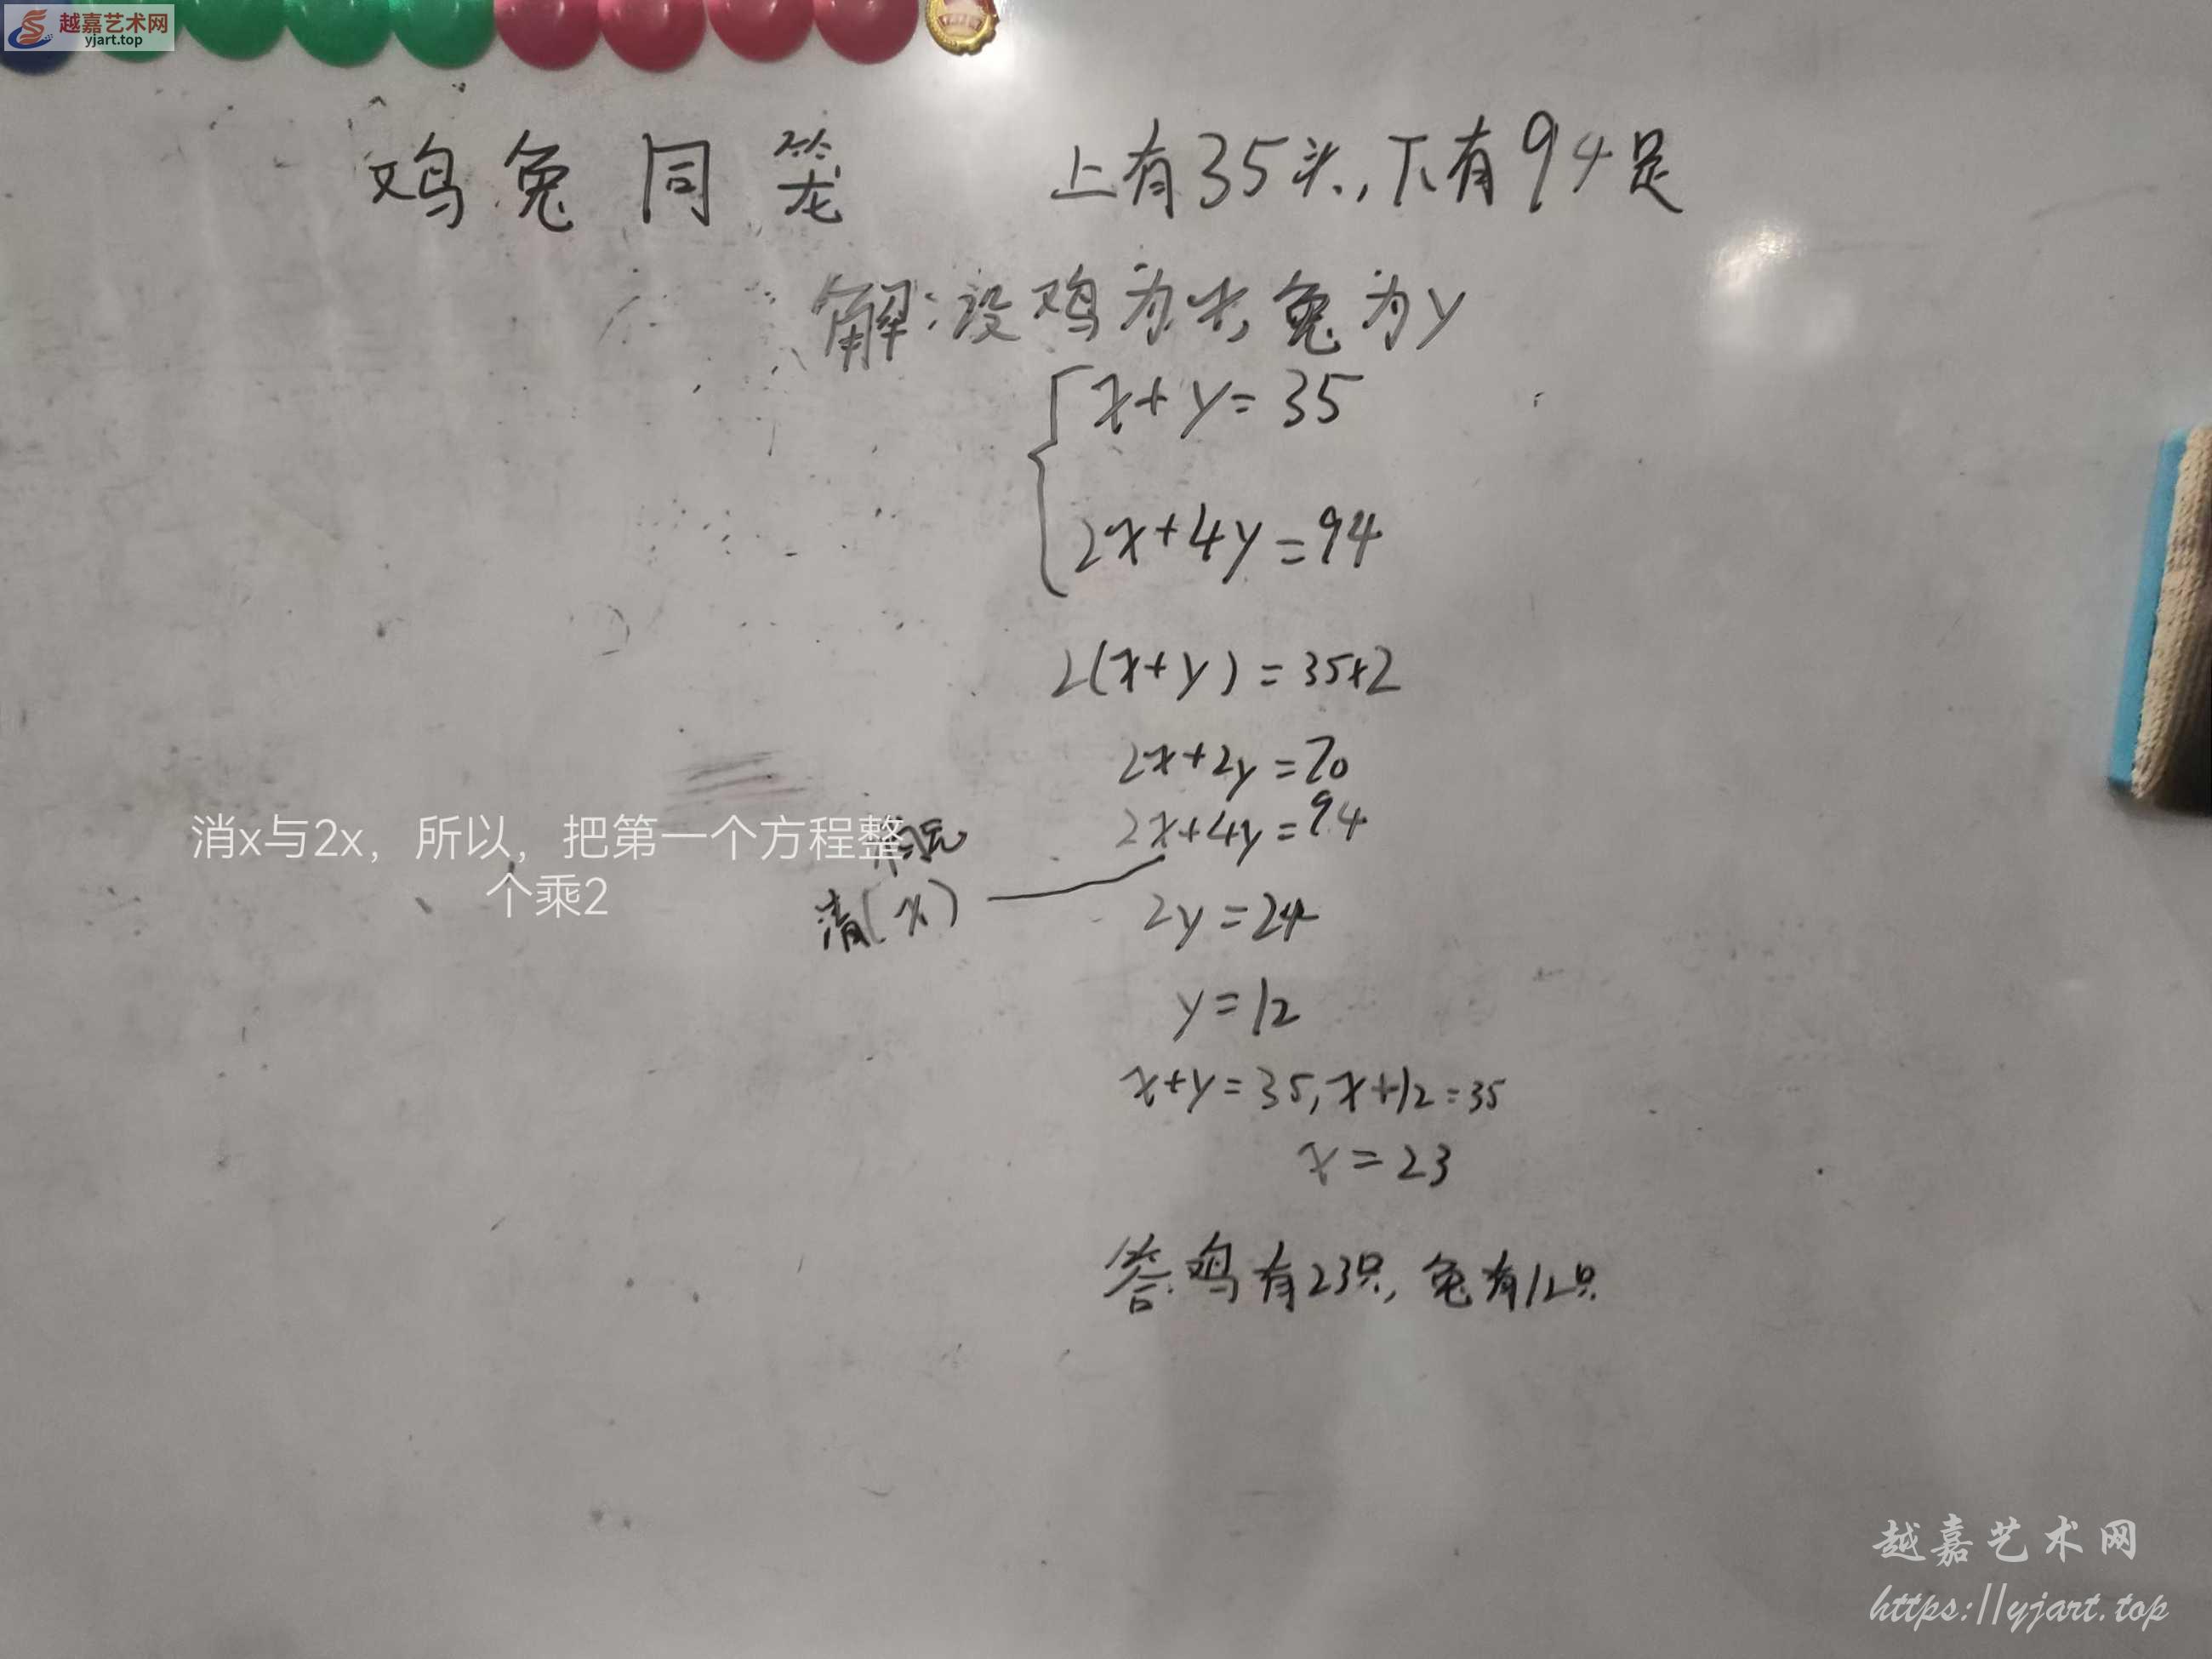 越嘉艺术网
yjart.top
鸡兔同笼 上有35头,下有94足
解:设鸡为x,兔为y
x+y=35
2x+4y=94
2(x+y)=35×2
2x+2y=70
2x+4y=94
消x与2x，所以，把第一个方程整
个乘2
清(x)
2y=24
y=12
x+y=35,x+12=35
x=23
答:鸡有23只,兔有12只.
越嘉艺术网
https://yjart.top